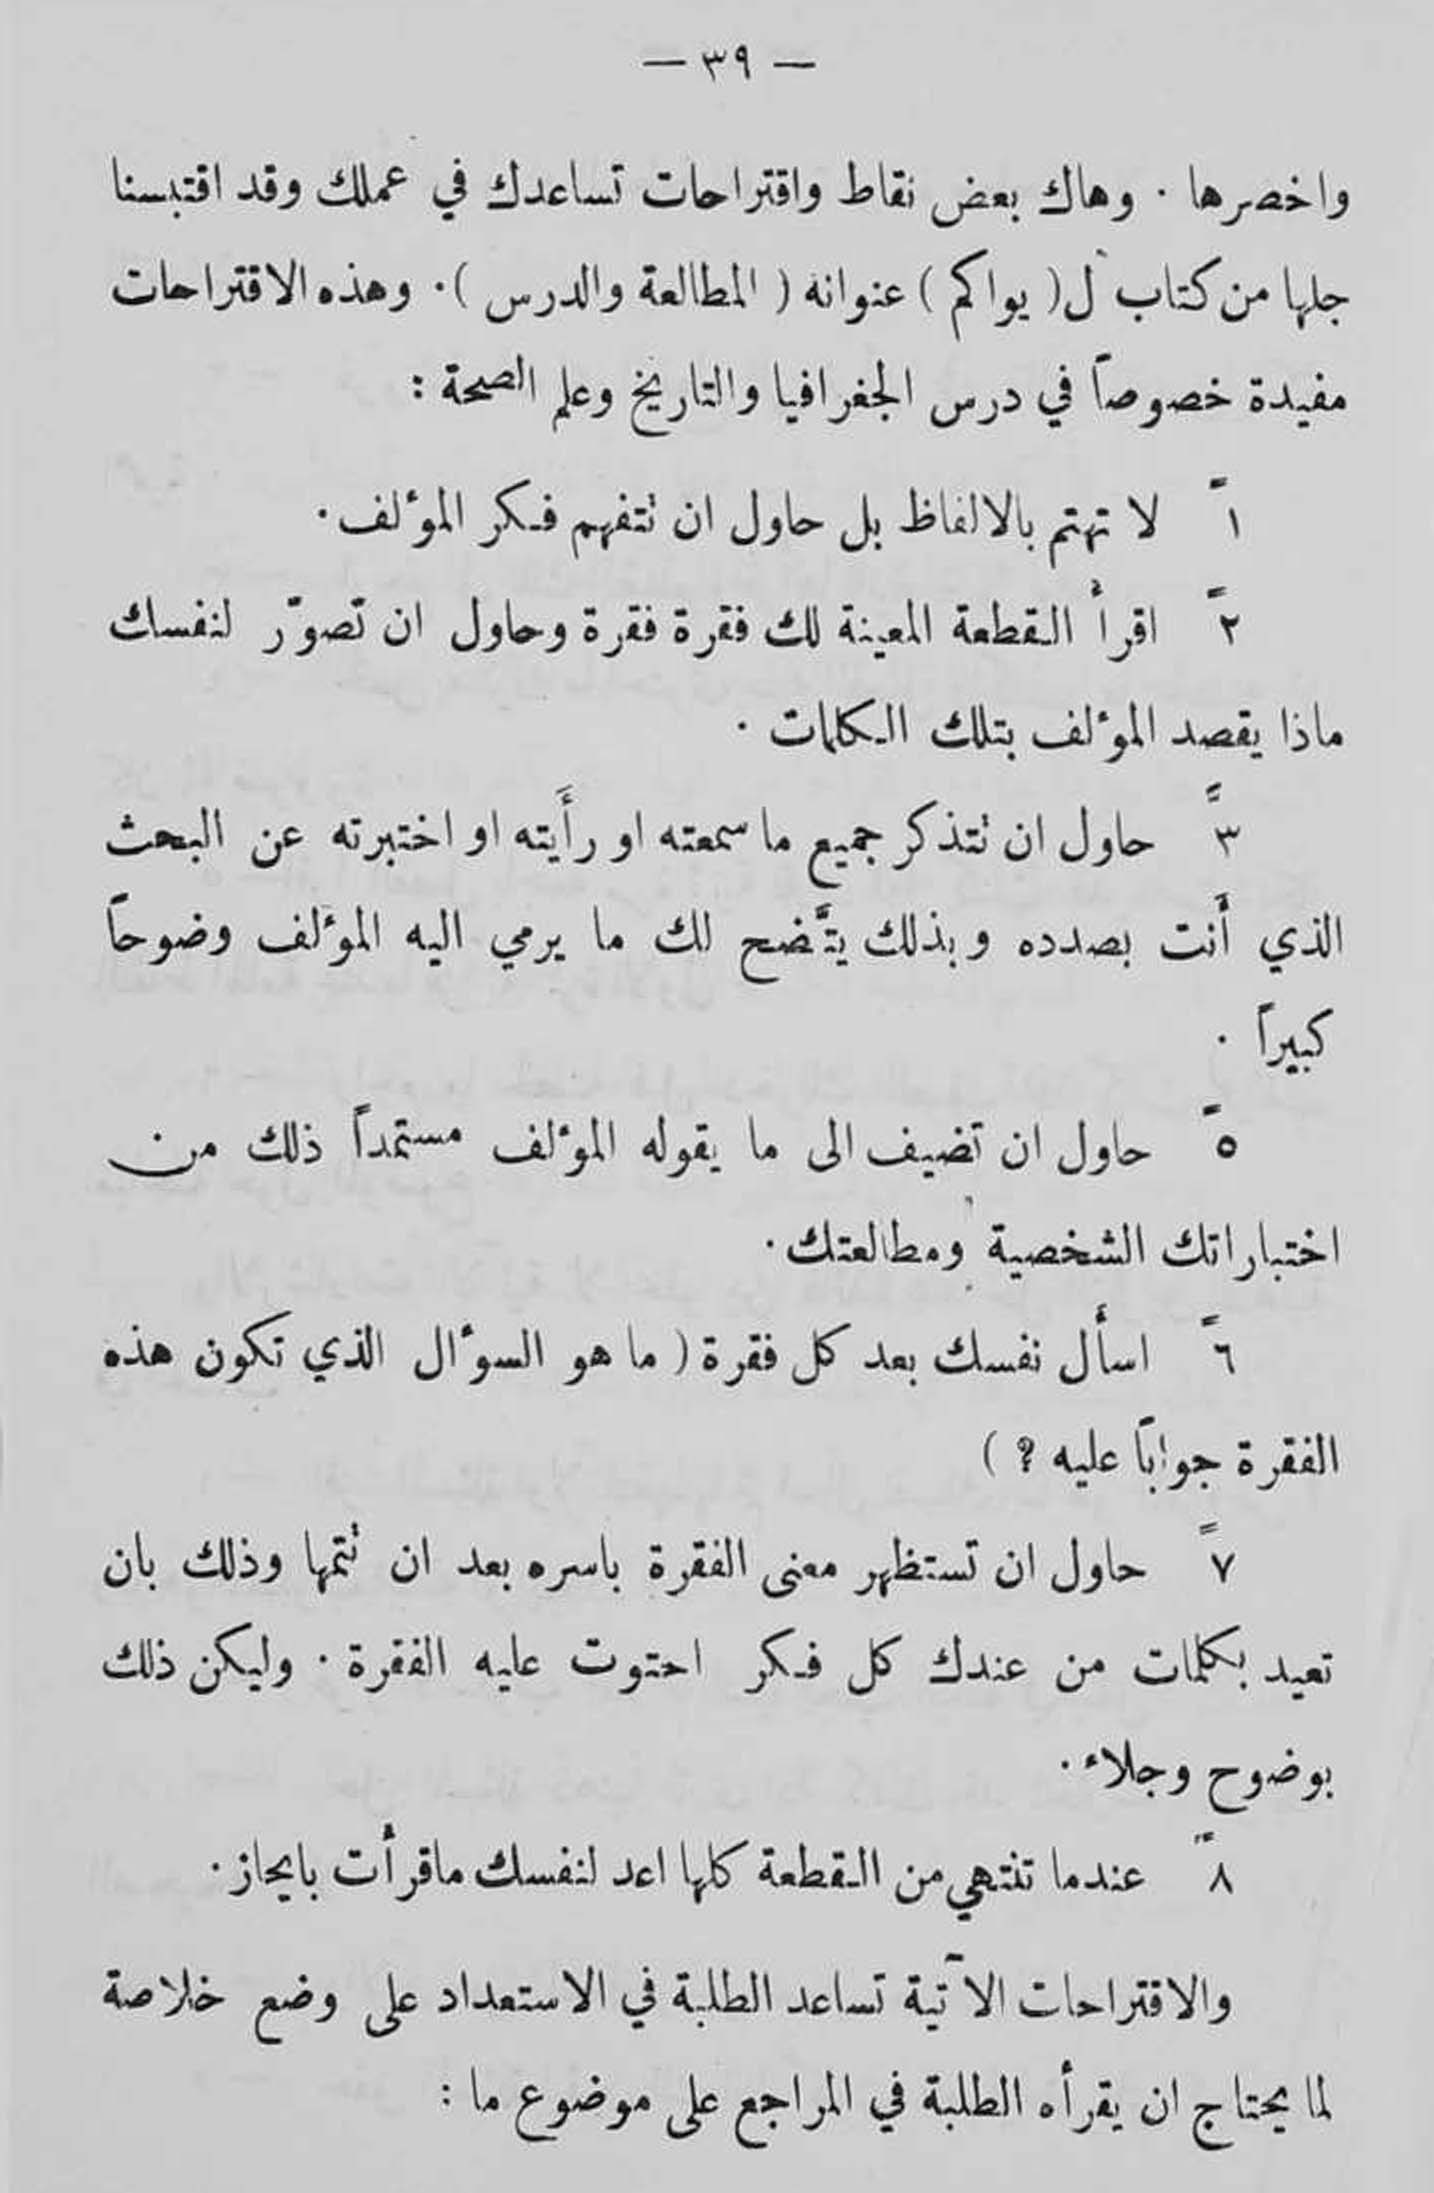 — ٣٩ —
واخصرها . وهاك بعض نقاط واقتراحات تساعدك في عملك وقد اقتبسنا
جلها من كتاب ل( يواكم ) عنوانه ( المطالعة والدرس ). وهذه الاقتراحات
مفيدة خصوصاً في درس الجغرافيا والتاريخ وعلم الصحة :
١ً لا تهتم بالالفاظ بل حاول ان نتفهم فكر المؤلف .
٢ً اقرأ القطعة المعينة لك فقرة فقرة وحاول ان تصوّر لنفسك
ماذا يقصد المؤلف بتلك الكلمات .
٣ً حاول ان نتذكر جميع ما سمعته او رأَيته او اختبرته عن البحث
الذي أَنت بصدده وبذلك يتَّضح لك ما يرمي اليه المؤلف وضوحاً
كبيراً .
٥ً حاول ان تضيف الى ما يقوله المؤلف مستمداً ذلك من
اختباراتك الشخصية ومطالعتك .
٦ً اسأَل نفسك بعد كل فقرة ( ما هو السؤال الذي تكون هذه
الفقرة جواباً عليه ؟ )
٧ً حاول ان تستظهر معنى الفقرة باسره بعد ان نتمها وذلك بان
تعيد بكلمات من عندك كل فكر احتوت عليه الفقرة . وليكن ذلك
بوضوح وجلاء .
٨ً عندما تنتهي من القطعة كلها اعد لنفسك ماقرأت بايجاز .
والاقتراحات الآتية تساعد الطلبة في الاستعداد على وضع خلاصة
لما يحتاج ان يقرأه الطلبة في المراجع على موضوع ما :